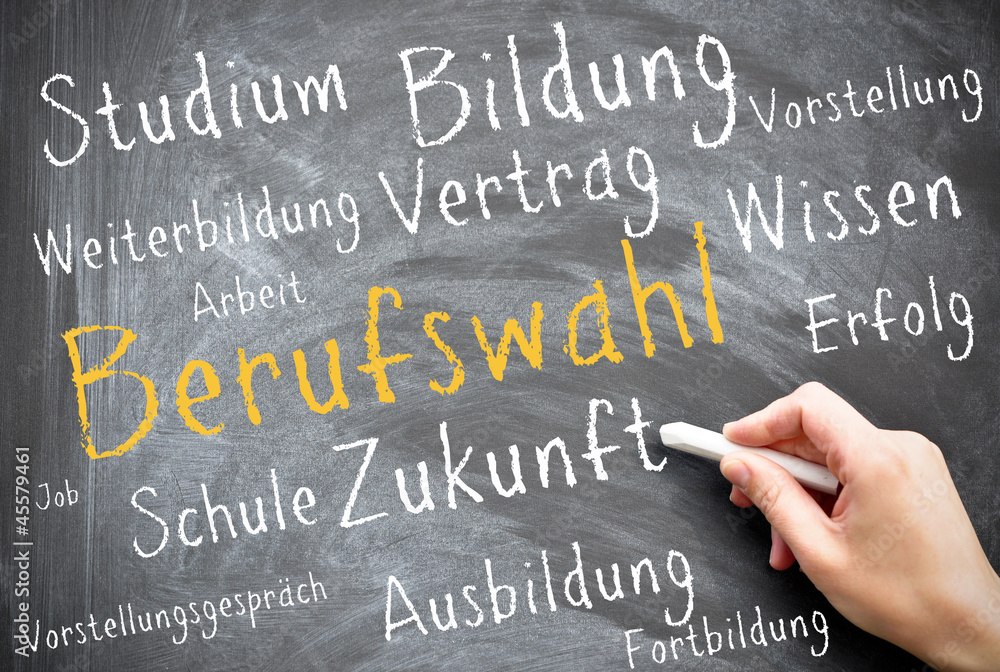 Studium Bildung
Vorstellung
Weiterbildung Vertrag Wissen
Arbeit
Berufswahl Erfolg
Job
Schule Zukunft
Vorstellungsgespräch
Ausbildung
Fortbildung
Adobe Stock | #45579461